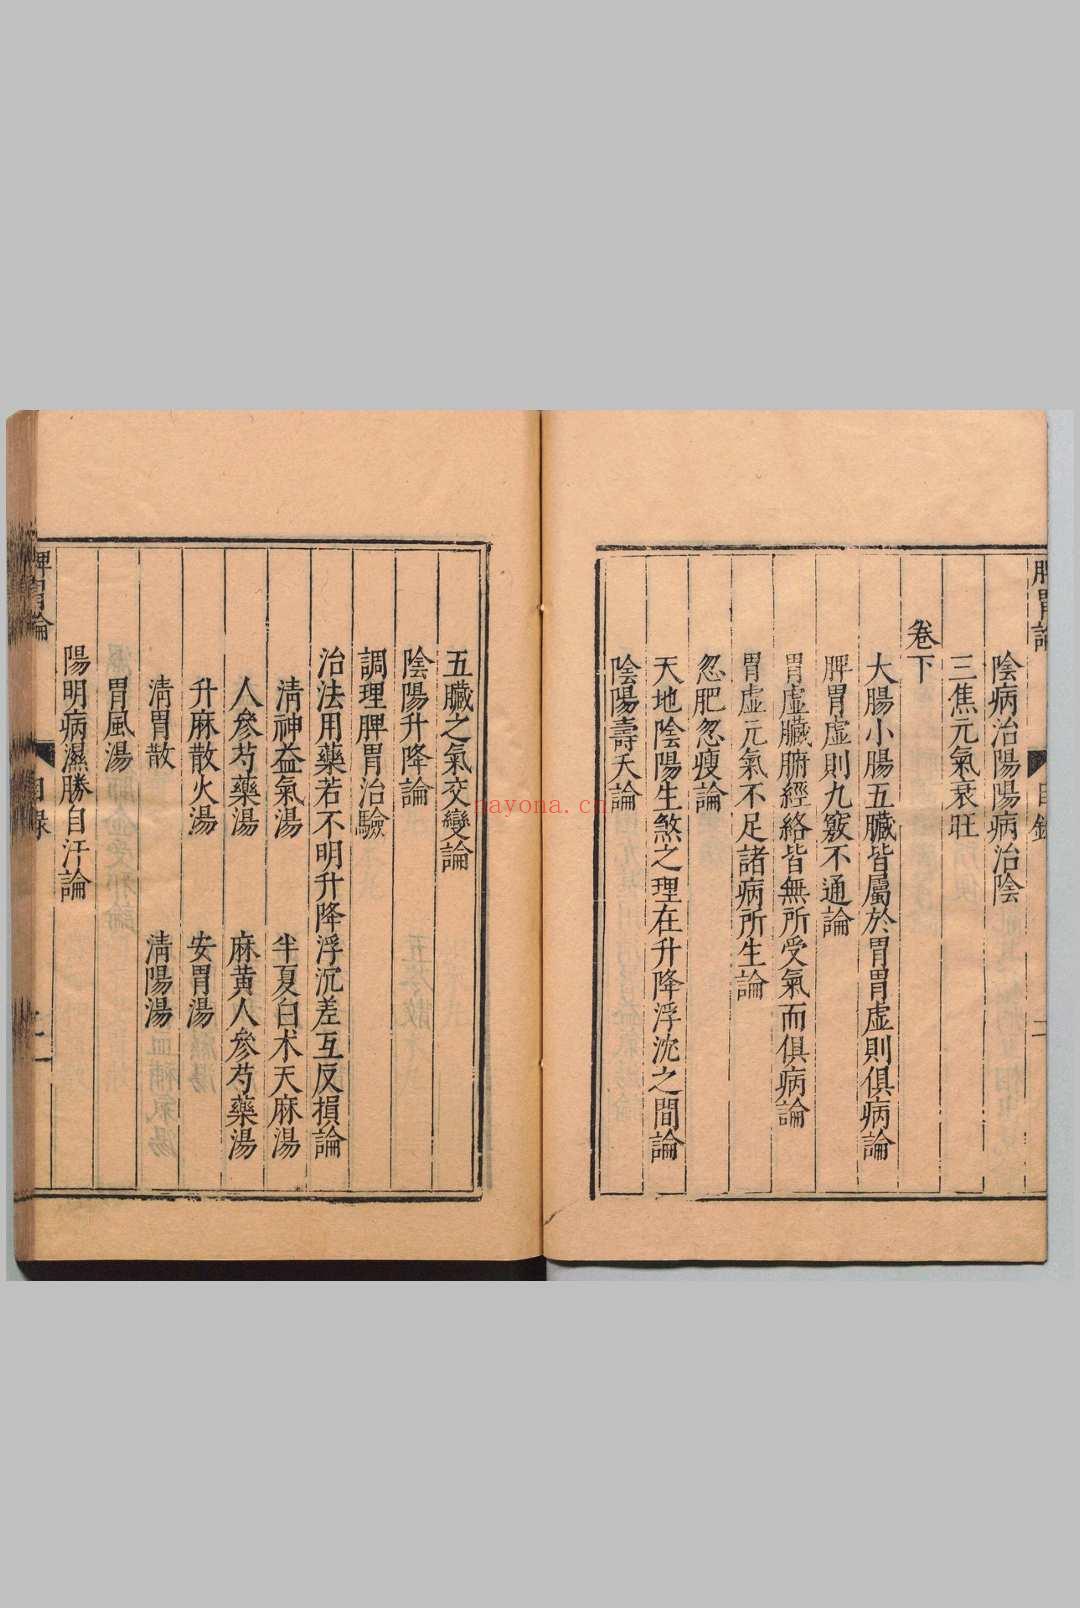 脾胃論
目錄
二
陰病治陽陽病治陰
三焦元氣衰旺
卷下
大腸小腸五臟皆屬於胃胃虛則俱病論
脾胃虛則九竅不通論
胃虛臟腑經絡皆無所受氣而俱病論
胃虛元氣不足諸病所生論
忽肥忽瘦論
天地陰陽生煞之理在升降浮沈之間論
陰陽壽夭論
五臟之氣交變論
陰陽升降論
調理脾胃治驗
治法用藥若不明升降浮沉差互反損論
清神益氣湯 半夏白朮天麻湯
人參芍藥湯 麻黃人參芍藥湯
升麻散火湯 安胃湯
清胃散 清陽湯
胃風湯
陽明病濕勝自汗論
脾胃論
目錄
nayona.cn